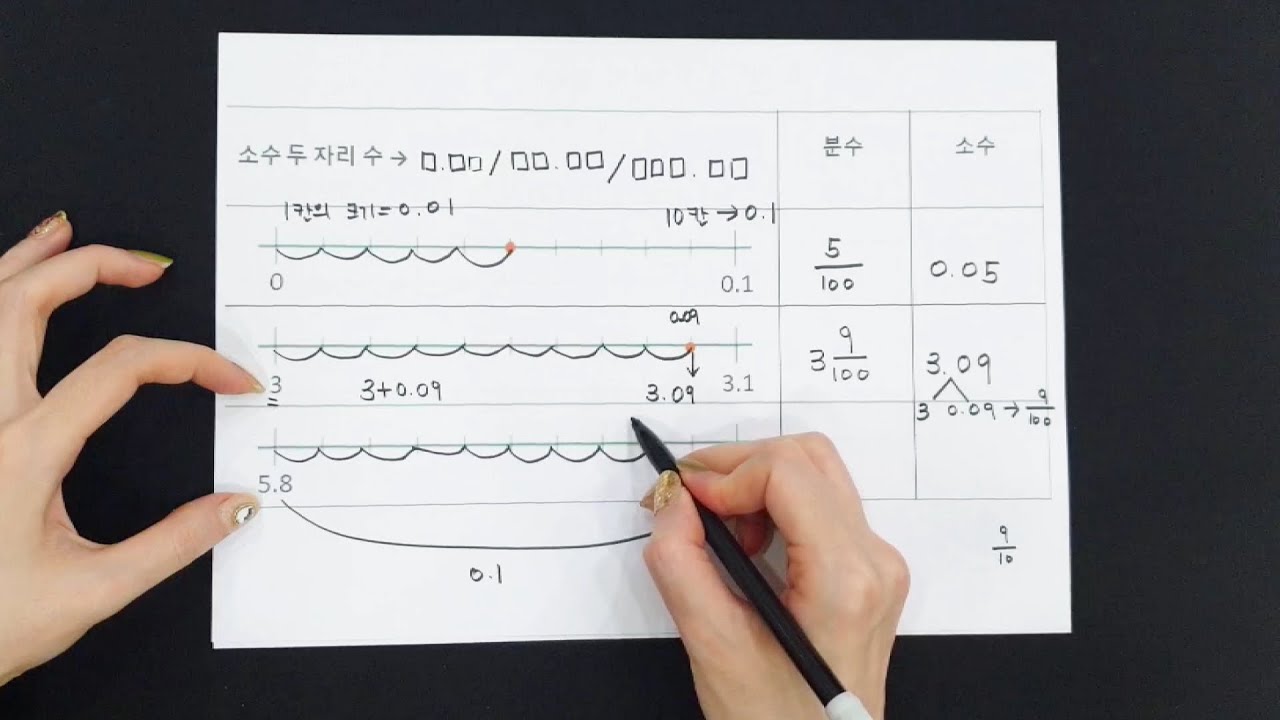 소수 두 자리 수 → □.□□/□□.□□/□□□.□□
분수
소수
1칸의 크기=0.01
10칸→0.1
0
0.1
5/100
0.05
0.09
3
3+0.09
3.09
3.1
3 9/100
3.09
3 0.09→9/100
5.8
0.1
9/10